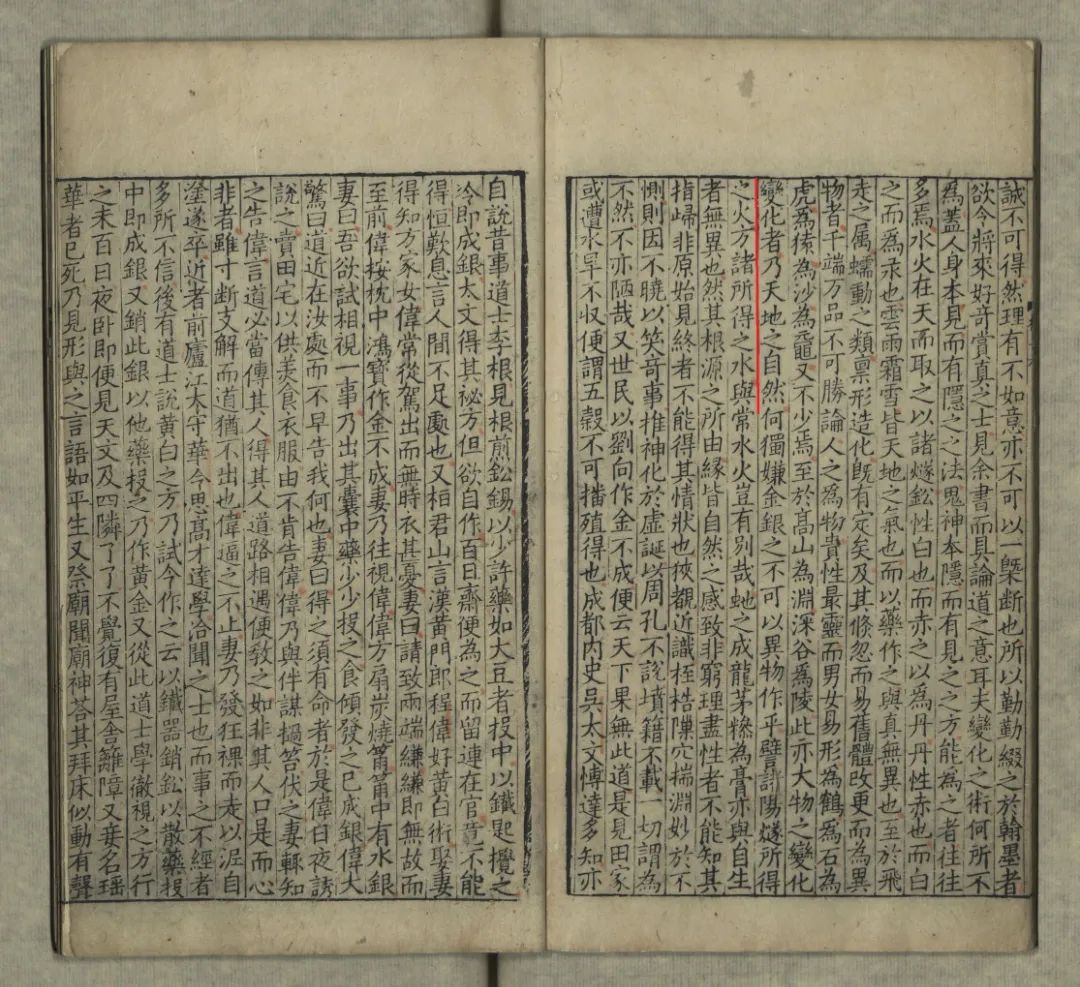 誠不可得然理有不如意亦不可以一槩断也所以勤勤綴之於翰墨者
欲令將來好奇賞真之士見余書而具論道之意耳夫變化之術何所不
為蓋人身本見而有隱之之法鬼神本隱而有見之之方能為之者往往
多焉水火在天而取之以諸燧鈆性白也而赤之以為丹丹性赤也而白
之而爲汞也雲雨霜雪皆天地之氣也而以藥作之與真無異也至於飛
走之属蠕動之類禀形造化旣有定矣及其倏忽而易舊體改更而為異
物者千端万品不可勝論人之爲物貴性最靈而男女易形為鶴爲石為
虎為猿為沙為黿又不少焉至於高山為淵深谷為陵此亦大物之變化
變化者乃天地之自然何獨嫌金銀之不可以異物作乎譬諸陽燧所得
之火方諸所得之水與常水火豈有別哉虵之成龍茅糝為膏亦與自生
者無異也然其根源之所由緣皆自然之感致非窮理盡性者不能知其
指歸非原始見終者不能得其情狀也狹覩近識桎梏巢穴揣淵妙於不
惻則因不曉以笑竒事推神化於虛誕以周孔不說墳籍不載一切謂為
不然不亦陋哉又世民以劉向作金不成便云天下果無此道是見田家
或遭水旱不収便謂五穀不可播殖得也成都內史吳太文博達多知亦
自說昔事道士李根見根煎鈆錫以少許藥如大豆者投中以鐵匙攪之
冷即成銀太文得其秘方但欲自作百日齋便為之而留連在官竟不能
得恒歎息言人間不足處也又桓君山言漢黄門郎程偉好黄白術娶妻
得知方家女偉常從駕出而無時衣甚憂妻曰請致兩端縑縑即無故而
至前偉按枕中鴻寶作金不成妻乃往視偉偉方扇炭燒筩筩中有水銀
妻曰吾欲試相視一事乃出其囊中藥少少投之食傾發之已成銀偉大
驚曰道近在汝處而不早告我何也妻曰得之須有命者於是偉日夜誘
說之賣田宅以供美食衣服由不肯告偉偉乃與伴謀撾笞伏之妻輒知
之告偉言道必當傳其人得其人道路相遇便敎之如非其人口是而心
非者雖寸断支解而道猶不出也偉逼之不止妻乃發狂裸而走以泥自
塗遂卒近者前廬江太守華令思高才達學洽聞之士也而事之不經者
多所不信後有道士說黄白之方乃試令作之云以鐵器銷鈆以散藥投
中即成銀又銷此銀以他藥投之乃作黃金又從此道士學徹視之方行
之未百日夜卧即便見天文及四隣了了不覺復有屋舍籬障又妾名瑶
華者已死乃見形與之言語如平生又祭廟聞廟神荅其拜床似動有聲